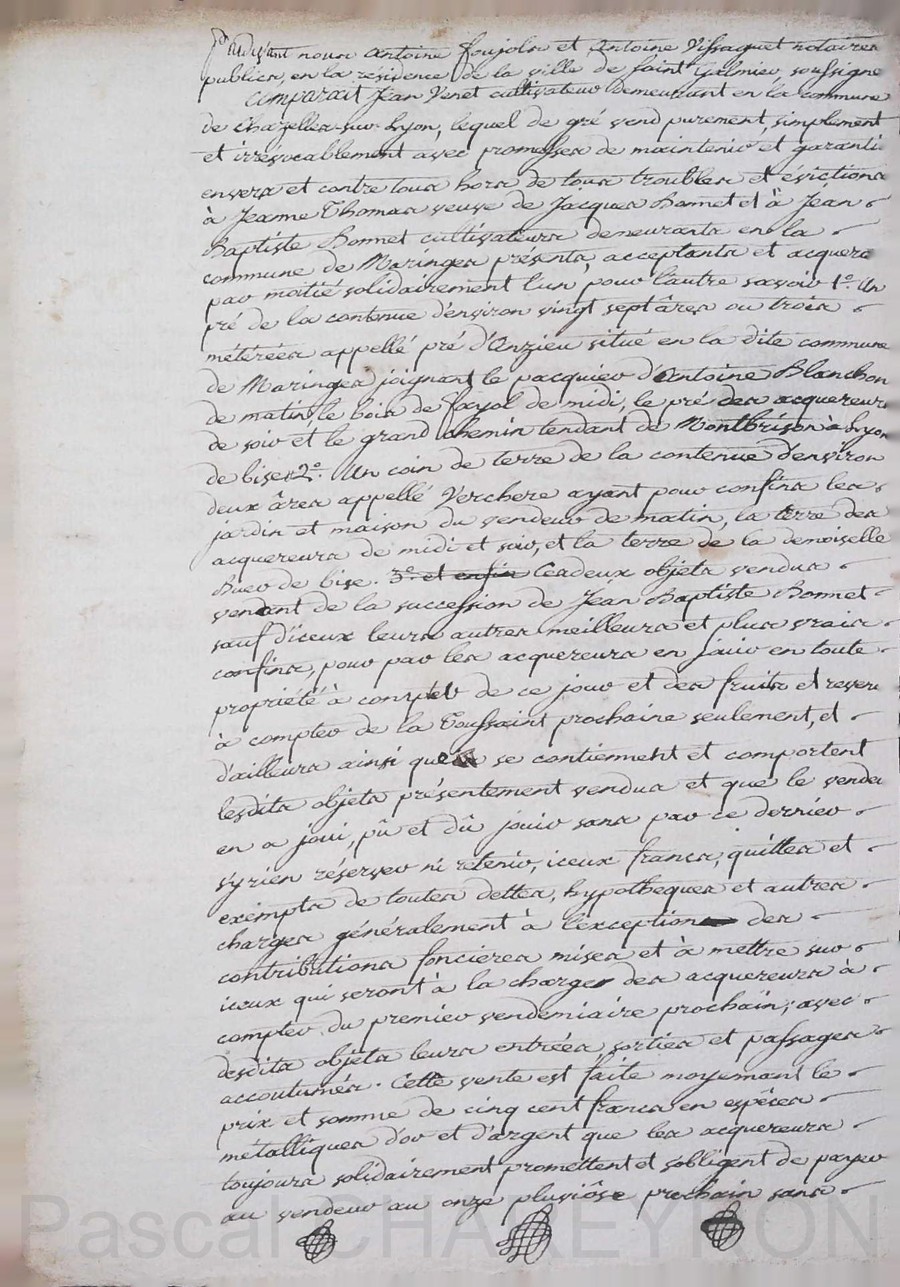 Pardevant nous Antoine Foujols et Antoine Vissaguet notaires
publics, en la résidence de la ville de Saint Galmier, soussignés
Comparait Jean Venet cultivateur demeurant en la commune
de Chazelles sur Lyon, lequel de gré vend purement, simplement
et irrévocablement avec promesses de maintenir et garantir
envers et contre tous hors de tous troubles et évictions
à Jeanne Thomas veuve de Jacques Bonnet et à Jean
Baptiste Bonnet cultivateurs demeurants en la
commune de Maringes présents, acceptants et acquere
par moitié solidairement l'un pour l'autre savoir 1.º Un
pré de la contenue d'environ vingt sept âres ou trois
métérées appellé pré d'Onzieu situé en la dite commune
de Maringes joignant le pacquier d'Antoine Blanchon
de matin, le bois de Fayol de midi, le pré des acquereurs
de soir et le grand chemin tendant de Montbrison à Lyon
de bise. 2.º Un coin de terre de la contenue d'environ
deux âres appellé Verchere ayant pour confins les
jardin et maison du vendeur de matin, la terre des
acquereurs de midi et soir, et la terre de la demoiselle
de bise. 3.º et enfin Ces deux objets vendus
venant de la succession de Jean Baptiste Bonnet
sauf d'iceux leurs autres meilleurs et plus vrais
confins, pour par les acquereurs en jouir en toute
propriété à compter de ce jour et des fruits et revenu
à compter de la Toussaint prochaine seulement, et
d'ailleurs ainsi que se contiennent et comportent
lesdits objets présentement vendus et que le vendeu
en a joui, pû et dû jouir sans par ce dernier
s'y rien réserver ni retenir, iceux francs, quittes et
exempts de toutes dettes, hypotheques et autres
charges généralement à l'exception des
contributions foncieres mises et à mettre sur
iceux qui seront à la charge des acquereurs à
compter du premier vendemiaire prochain; avec
desdits objets leurs entrées, sorties et passages
accoutumés. Cette vente est faite moyennant le
prix et somme de cinq cent francs en espéces
métalliques d'or et d'argent que les acquereurs
toujours solidairement promettent et s'obligent de payer
au vendeur au onze pluviôse prochain sans
Pascal CHAREYRON